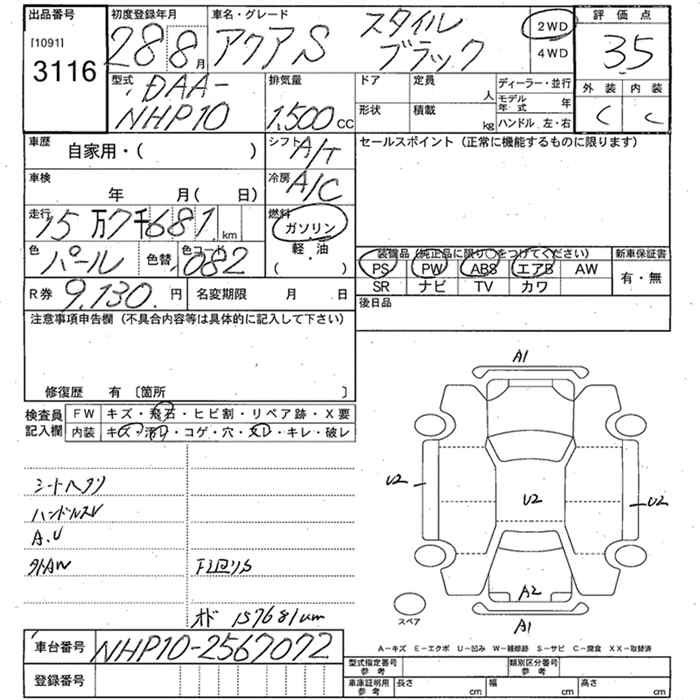 出品番号
[1091]
3116
初度登録年月
28 8月
車名・グレード
アクア S スタイル ブラック
2WD
4WD
評価点
3.5
外装 内装
C C
型式
DAA-
NHP10
排気量
1,500 CC
ドア 定員
人
形状 積載
kg
ディーラー・並行
モデル年式 年
ハンドル 左・右
車歴
自家用・( )
シフト
A/T
セールスポイント (正常に機能するものに限ります)
車検
年 月( 日)
冷房
A/C
走行
15万7千681 km
燃料
ガソリン
軽・油
( )
色
パール
色替
色コード
082
装備品 (純正品に限り○をつけてください)
新車保証書
PS PW ABS エアB AW
SR ナビ TV カワ
有・無
R券 9,130 円
名変期限 月 日
後日品
注意事項申告欄 (不具合内容等は具体的に記入して下さい)
修復歴 有 〔箇所 〕
検査員記入欄
FW キズ・飛石・ヒビ割・リペア跡・X要
内装 キズ・汚れ・コゲ・穴・スレ・キレ・破レ
シートヘタリ
ハンドルスレ
A.U
外AW
下回りS
オド 157681km
A1
U2
U2
U2
A2
A1
スペア
A-キズ E-エクボ U-凹み W-補修跡 S-サビ C-腐食 XX-取替済
車台番号 NHP10-2567072
登録番号
型式指定番号 参考
類別区分番号 参考
車庫証明用 参考
長さ cm 幅 cm 高さ cm